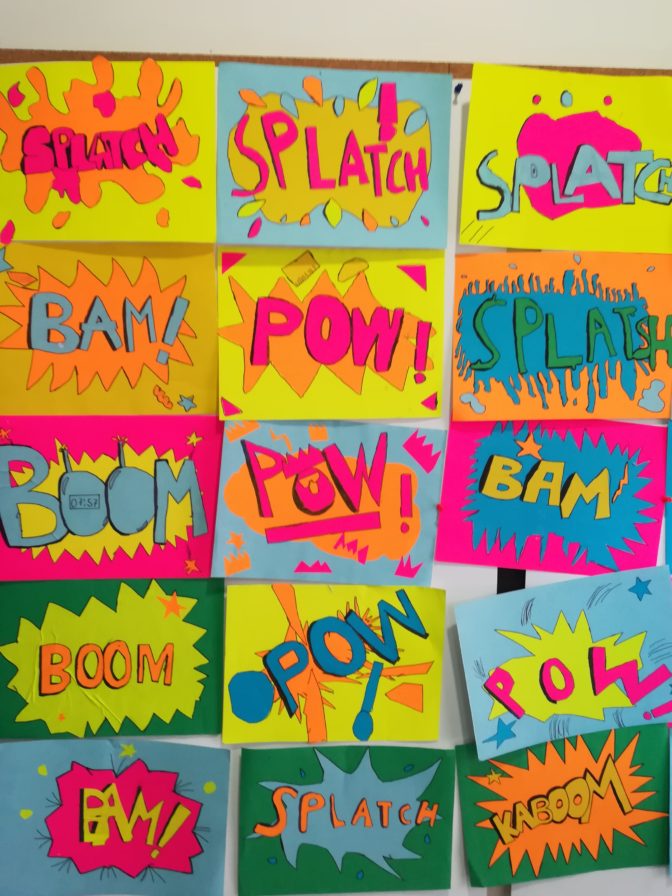 SPLATCH
SPLATCH!
SPLATCH
BAM!
POW!
SPLATSH
BOOM
01:57
POW!
BAM
BOOM
POW!
POW!
BAM!
SPLATCH
KABOOM